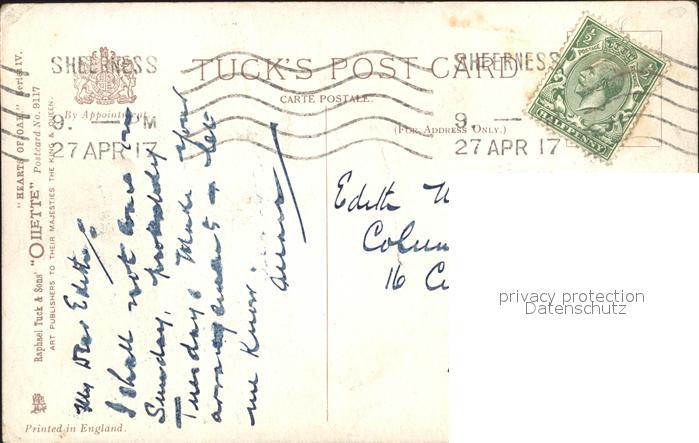 SHEERNESS
9. — M
27 APR 17
TUCK'S POST CARD
CARTE POSTALE.
(FOR ADDRESS ONLY.)
By Appointment
SHEERNESS
9. —
27 APR 17
POSTAGE
HALFPENNY
"HEARTS OF OAK" Series IV.
Raphael Tuck & Sons' "OILETTE" Postcard No. 9117
ART PUBLISHERS TO THEIR MAJESTIES THE KING & QUEEN.
My Dear Edith,
I shall not come on
Sunday, probably
Tuesday. Make your
arrangements & let
me know.
Edith
Colum
16 C
privacy protection
Datenschutz
Printed in England.